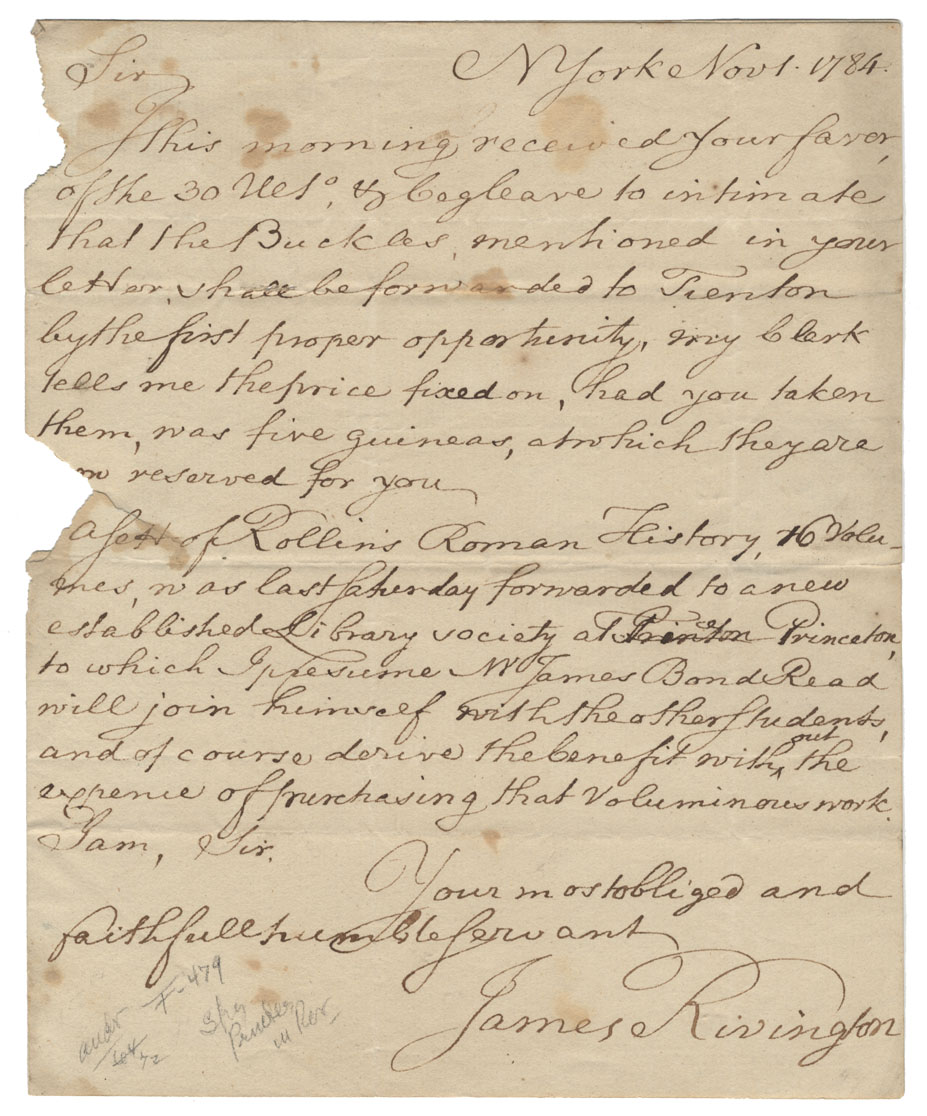 N York Nov 1. 1784.
Sir
I this morning received your favor,
of the 30 Ulto, & beg leave to intimate
that the Buckles, mentioned in your
letter, shall be forwarded to Trenton
by the first proper opportunity, my Clerk
tells me the price fixed on, had you taken
them, was five guineas, at which they are
reserved for you
a sett of Rollin's Roman History, 16 Volu-
mes, was last saturday forwarded to a new
established Library society at Princeton,
to which I presume Mr James Bond Read
will join himself with the other students,
and of course derive the benefit without the
expence of purchasing that Voluminous work.
I am, Sir.
Your most obliged and
faithfull humble servant
James Rivington
F-479
Spy
Printer
in Rev